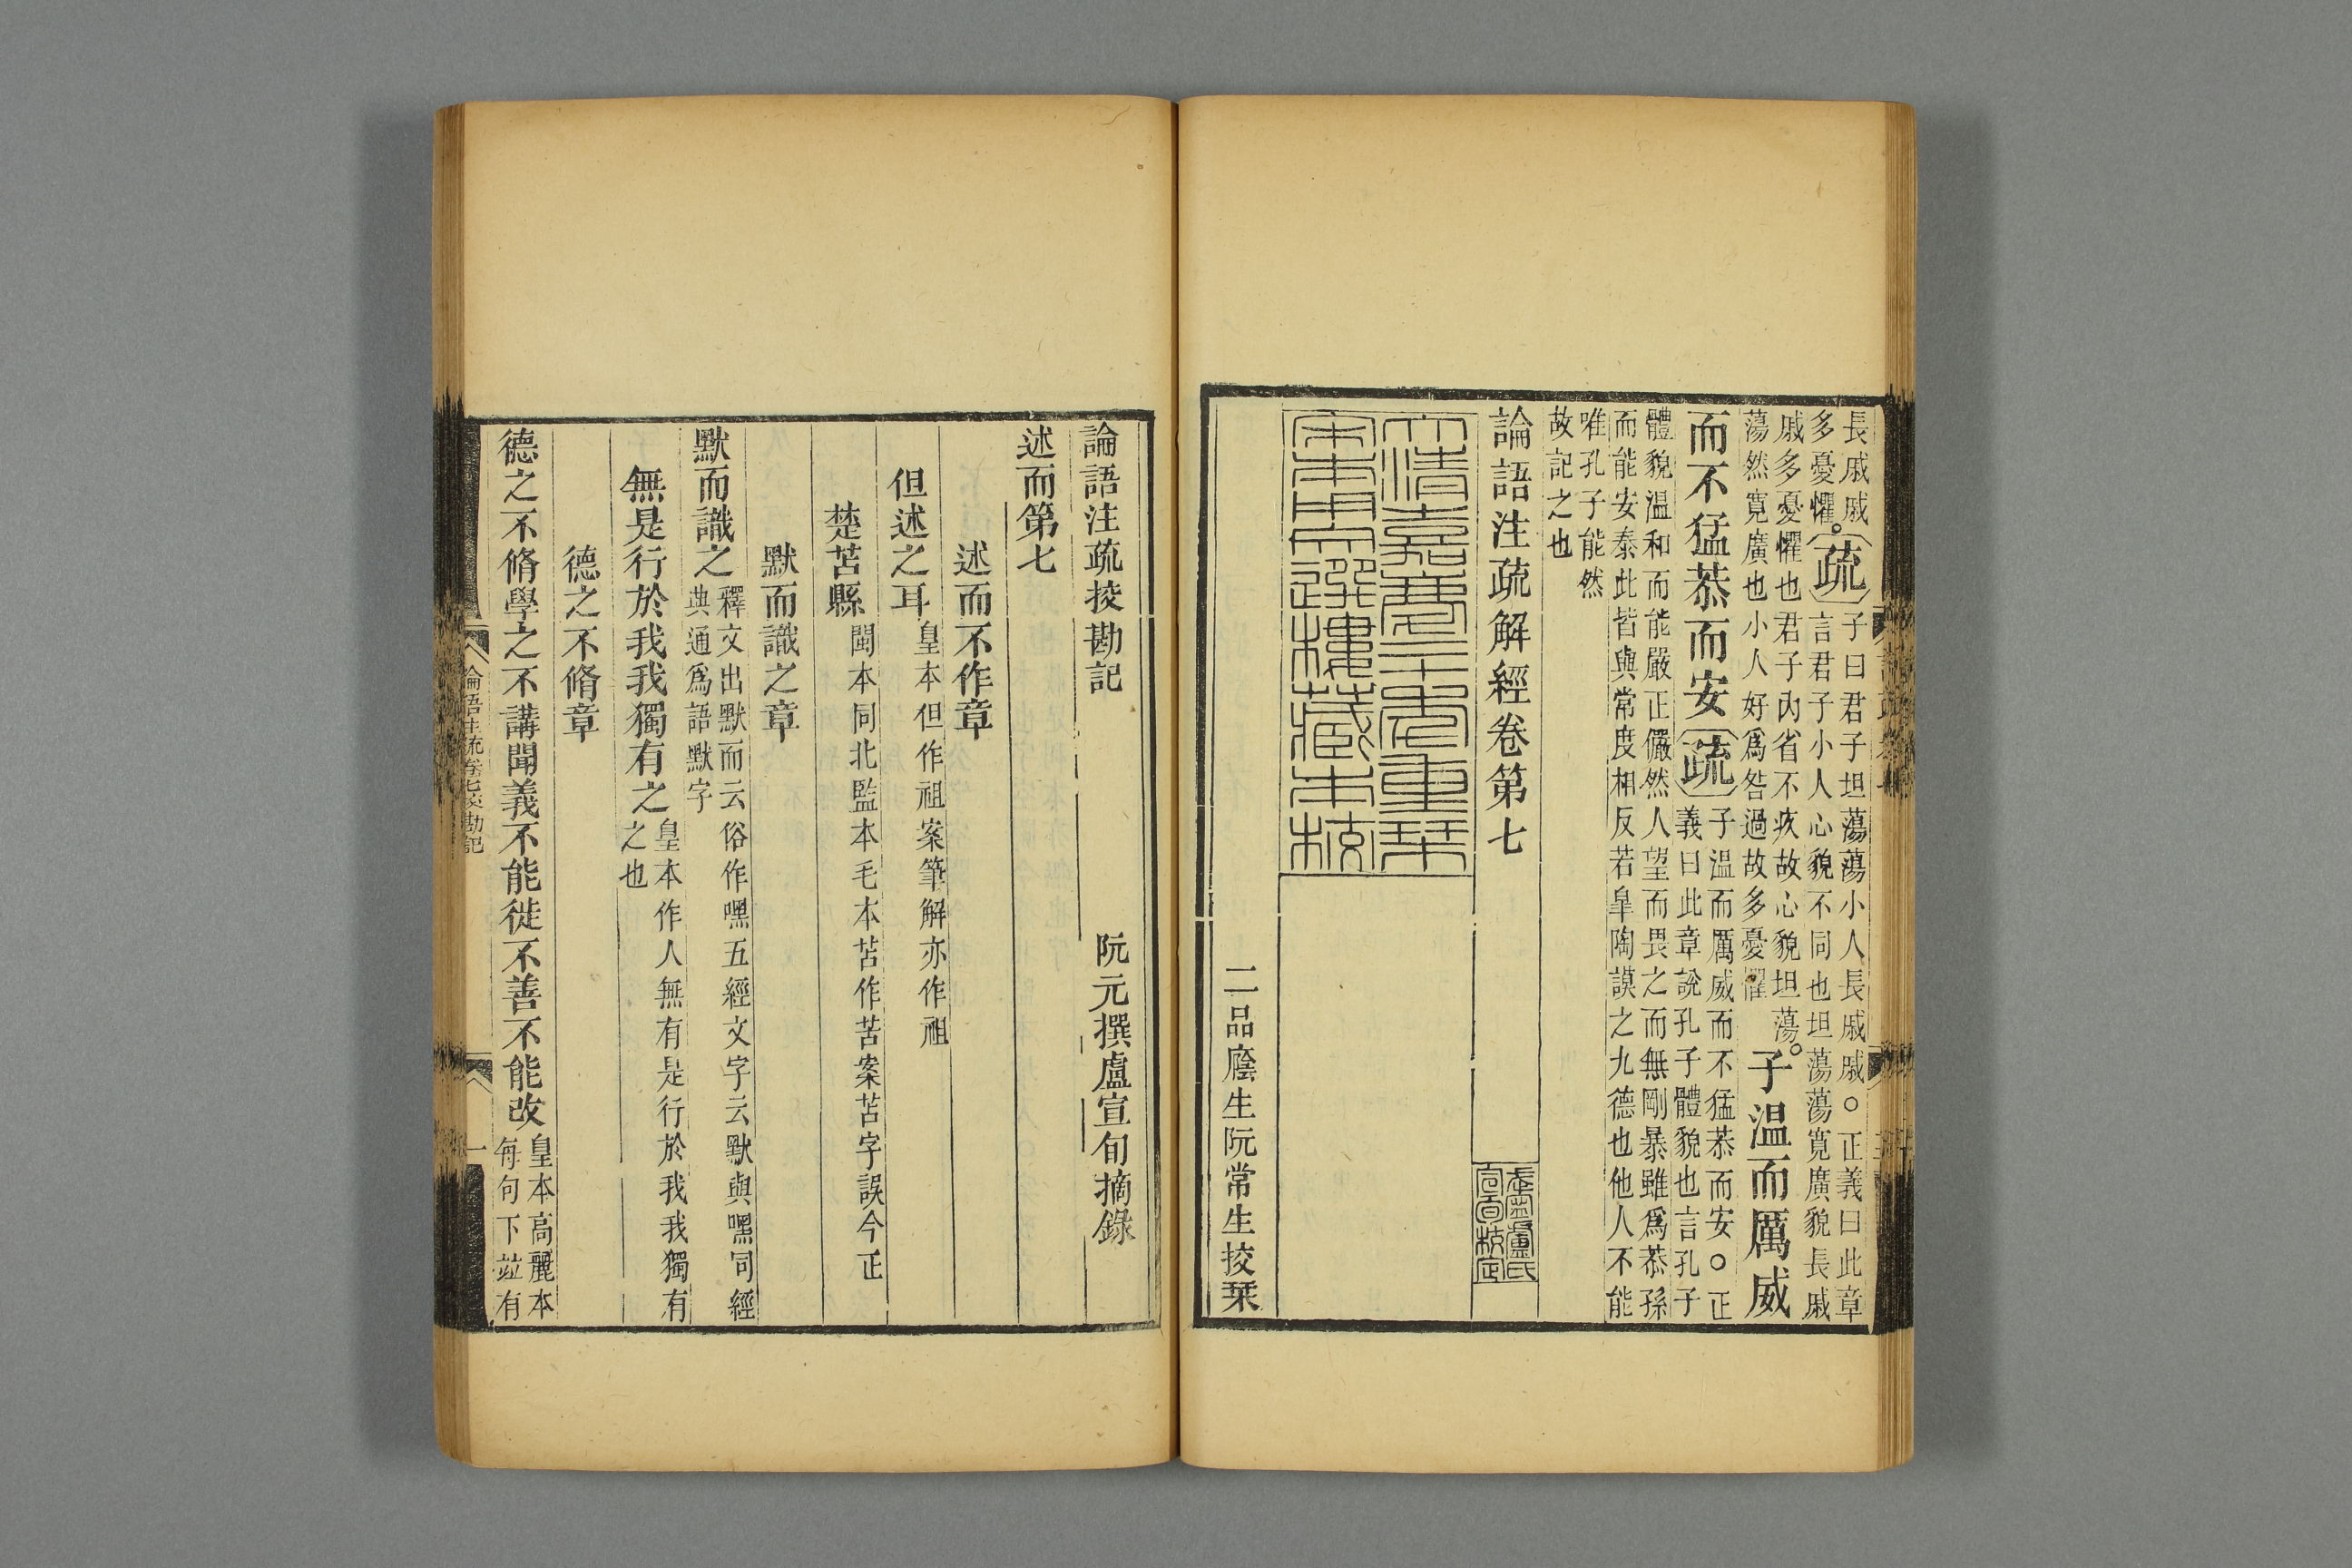 長戚戚
多憂懼
疏
子曰君子坦蕩蕩小人長戚戚○正義曰此章
言君子小人心貌不同也坦蕩蕩寬廣貌長戚
戚多憂懼也君子內省不疚故心貌坦蕩
蕩然寬廣也小人好爲咎過故多憂懼
子温而厲威
而不猛恭而安
疏
子温而厲威而不猛恭而安○正
義曰此章說孔子體貌也言孔子
體貌温和而能嚴正儼然人望而畏之而無剛暴雖爲恭孫
而能安泰此皆與常度相反若皐陶謨之九德也他人不能
唯孔子能然
故記之也
論語注疏解經卷第七
大清嘉慶二十年重栞
宋本用文選樓藏本校
武寧盧氏
宣旬校定
二品廕生阮常生挍栞
論語注疏挍勘記
阮元撰盧宣旬摘錄
述而第七
述而不作章
但述之耳
皇本但作祖案筆解亦作祖
楚苦縣
閩本同北監本毛本苦作苫案苫字誤今正
默而識之章
默而識之
釋文出默而云俗作嘿五經文字云默與嘿同經
典通爲語默字
無是行於我我獨有之
皇本作人無有是行於我我獨有
之也
德之不脩章
德之不脩學之不講聞義不能徙不善不能改
皇本高麗本
每句下竝有
論語注疏卷七挍勘記
一